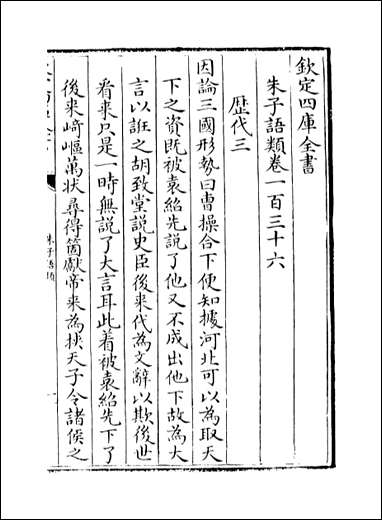 欽定四庫全書
朱子語類卷一百三十六
歴代三
因論三國形勢曰曹操合下便知據河北可以為取天
下之資既被袁紹先說了他又不成出他下故為大
言以誑之胡致堂說史臣後來代為文辭以欺後世
看來只是一時無說了大言耳此着被袁紹先下了
後来崎嶇萬狀尋得箇獻帝来為挾天子令諸侯之
朱子語類